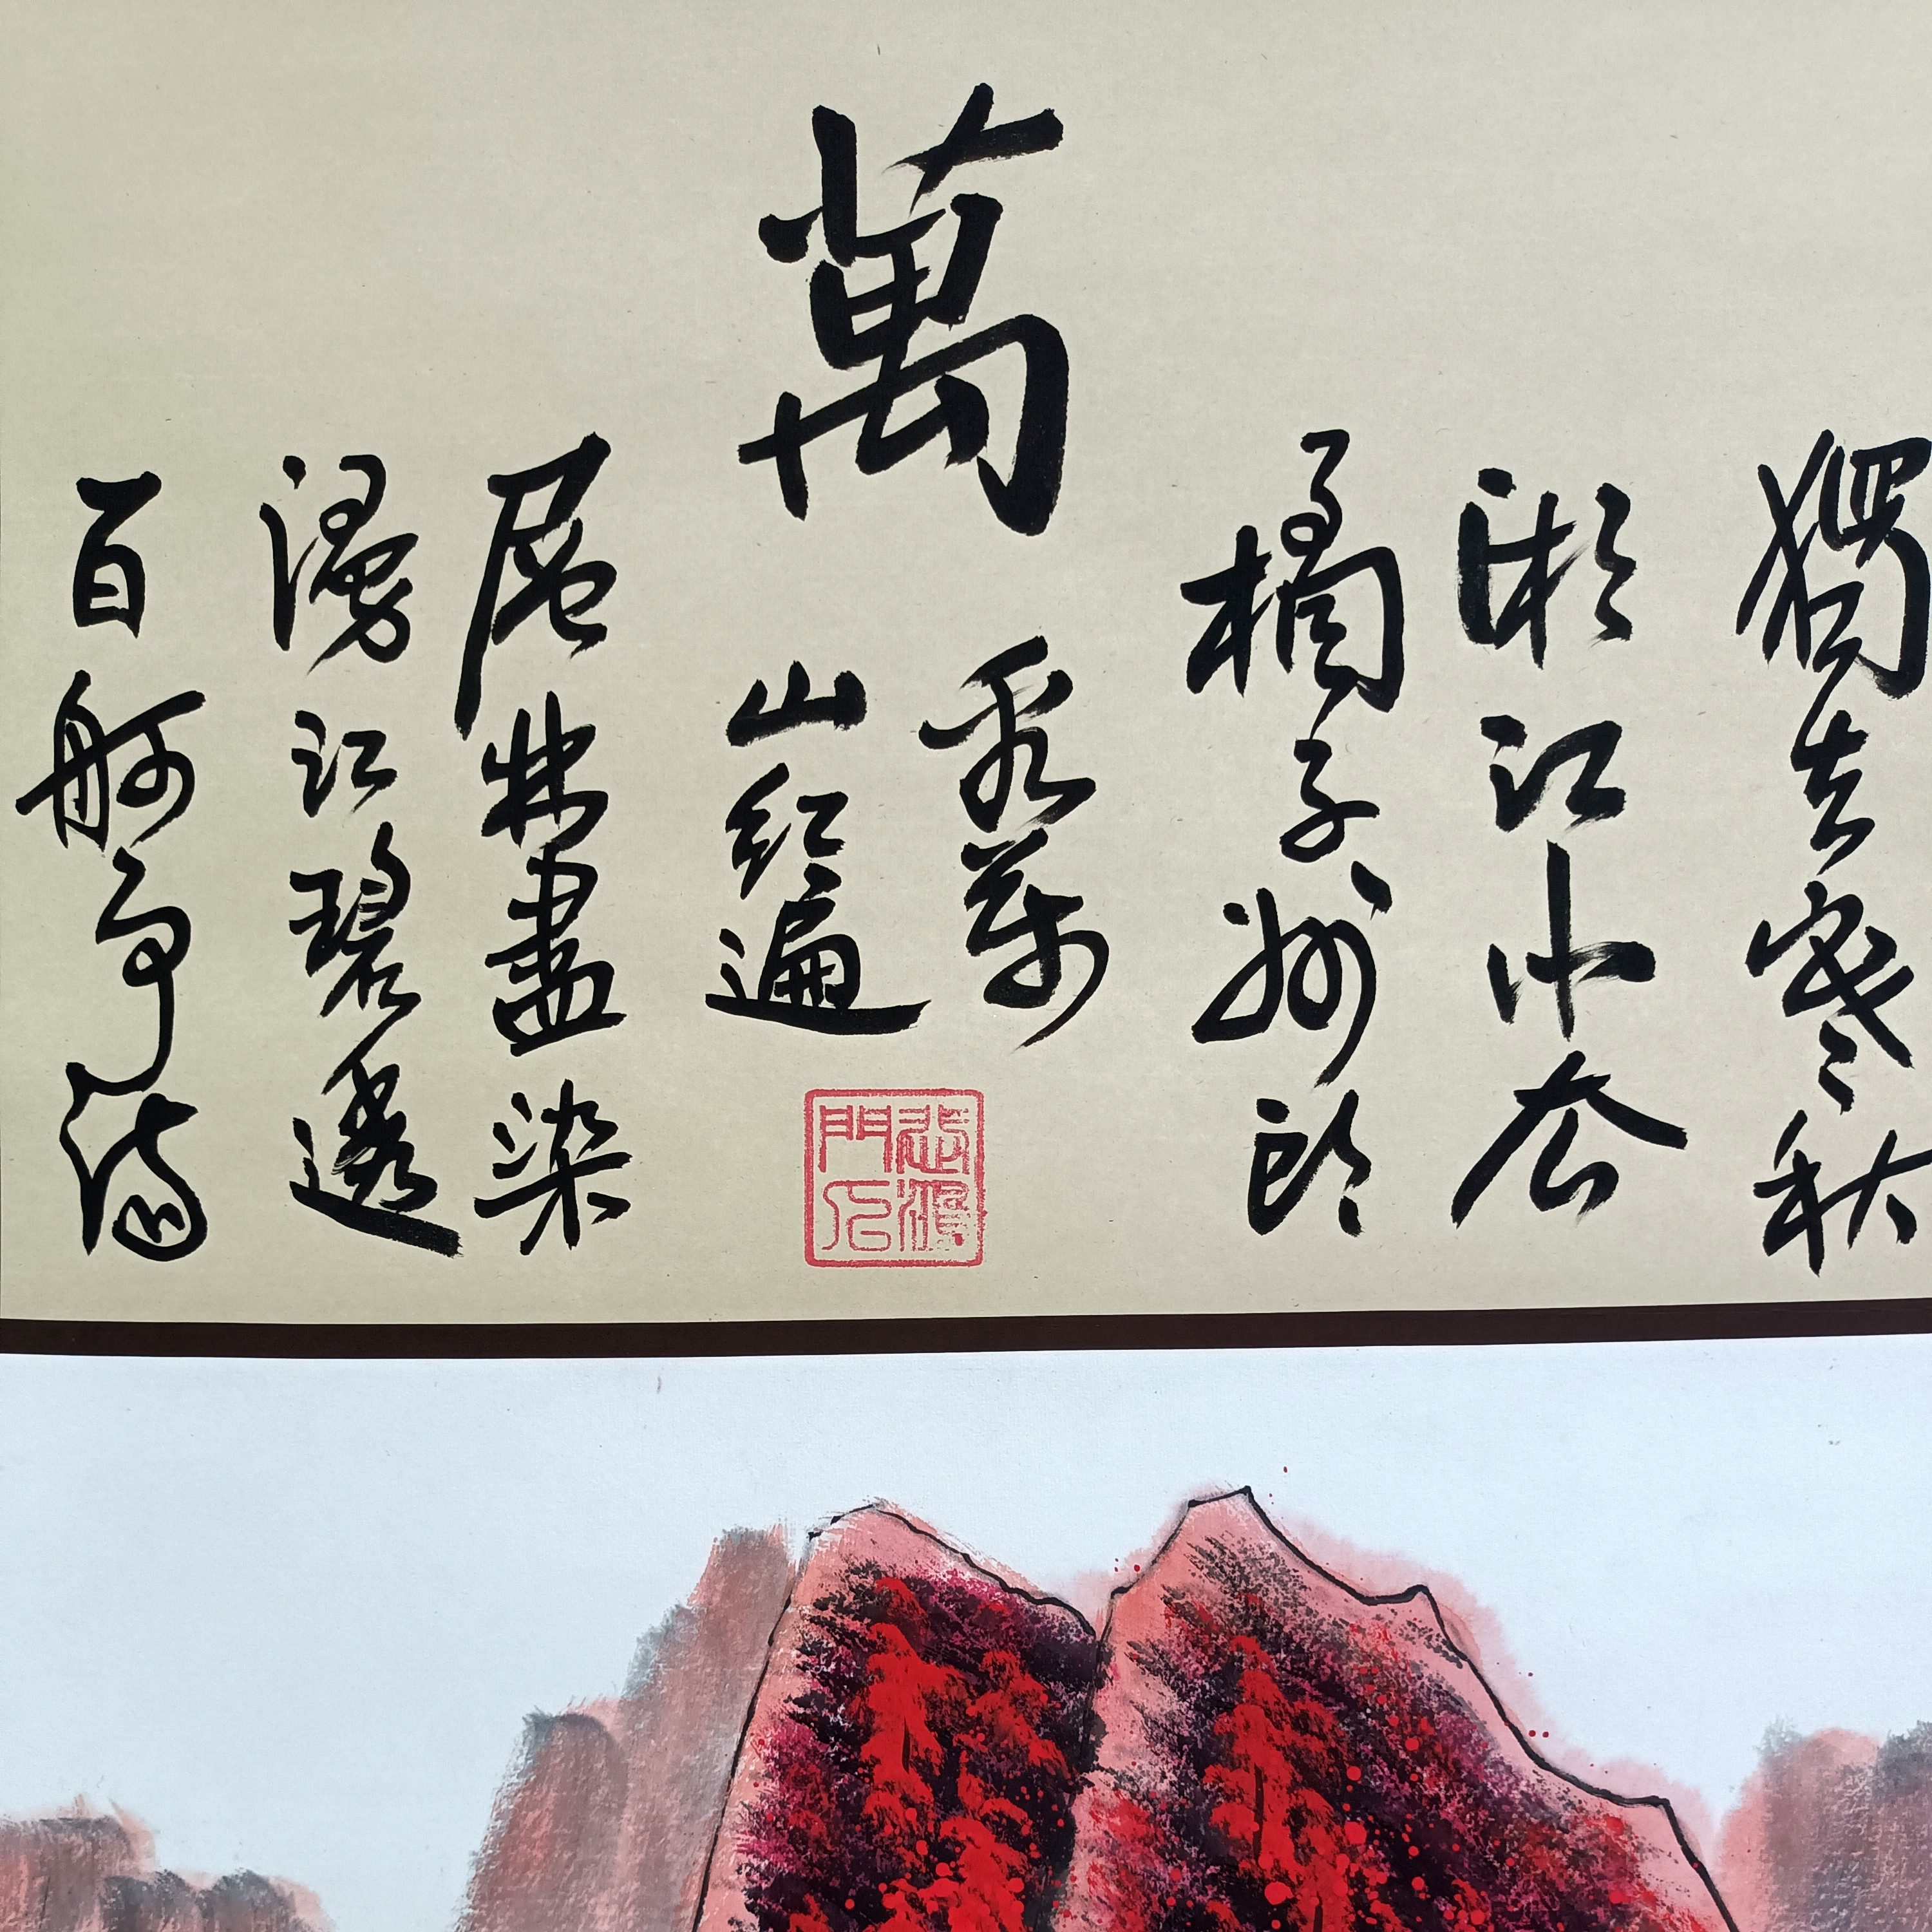 獨立寒秋
湘江北去
橘子洲頭
萬
看萬
山紅遍
層林盡染
漫江碧透
百舸爭流
悲鴻
門人